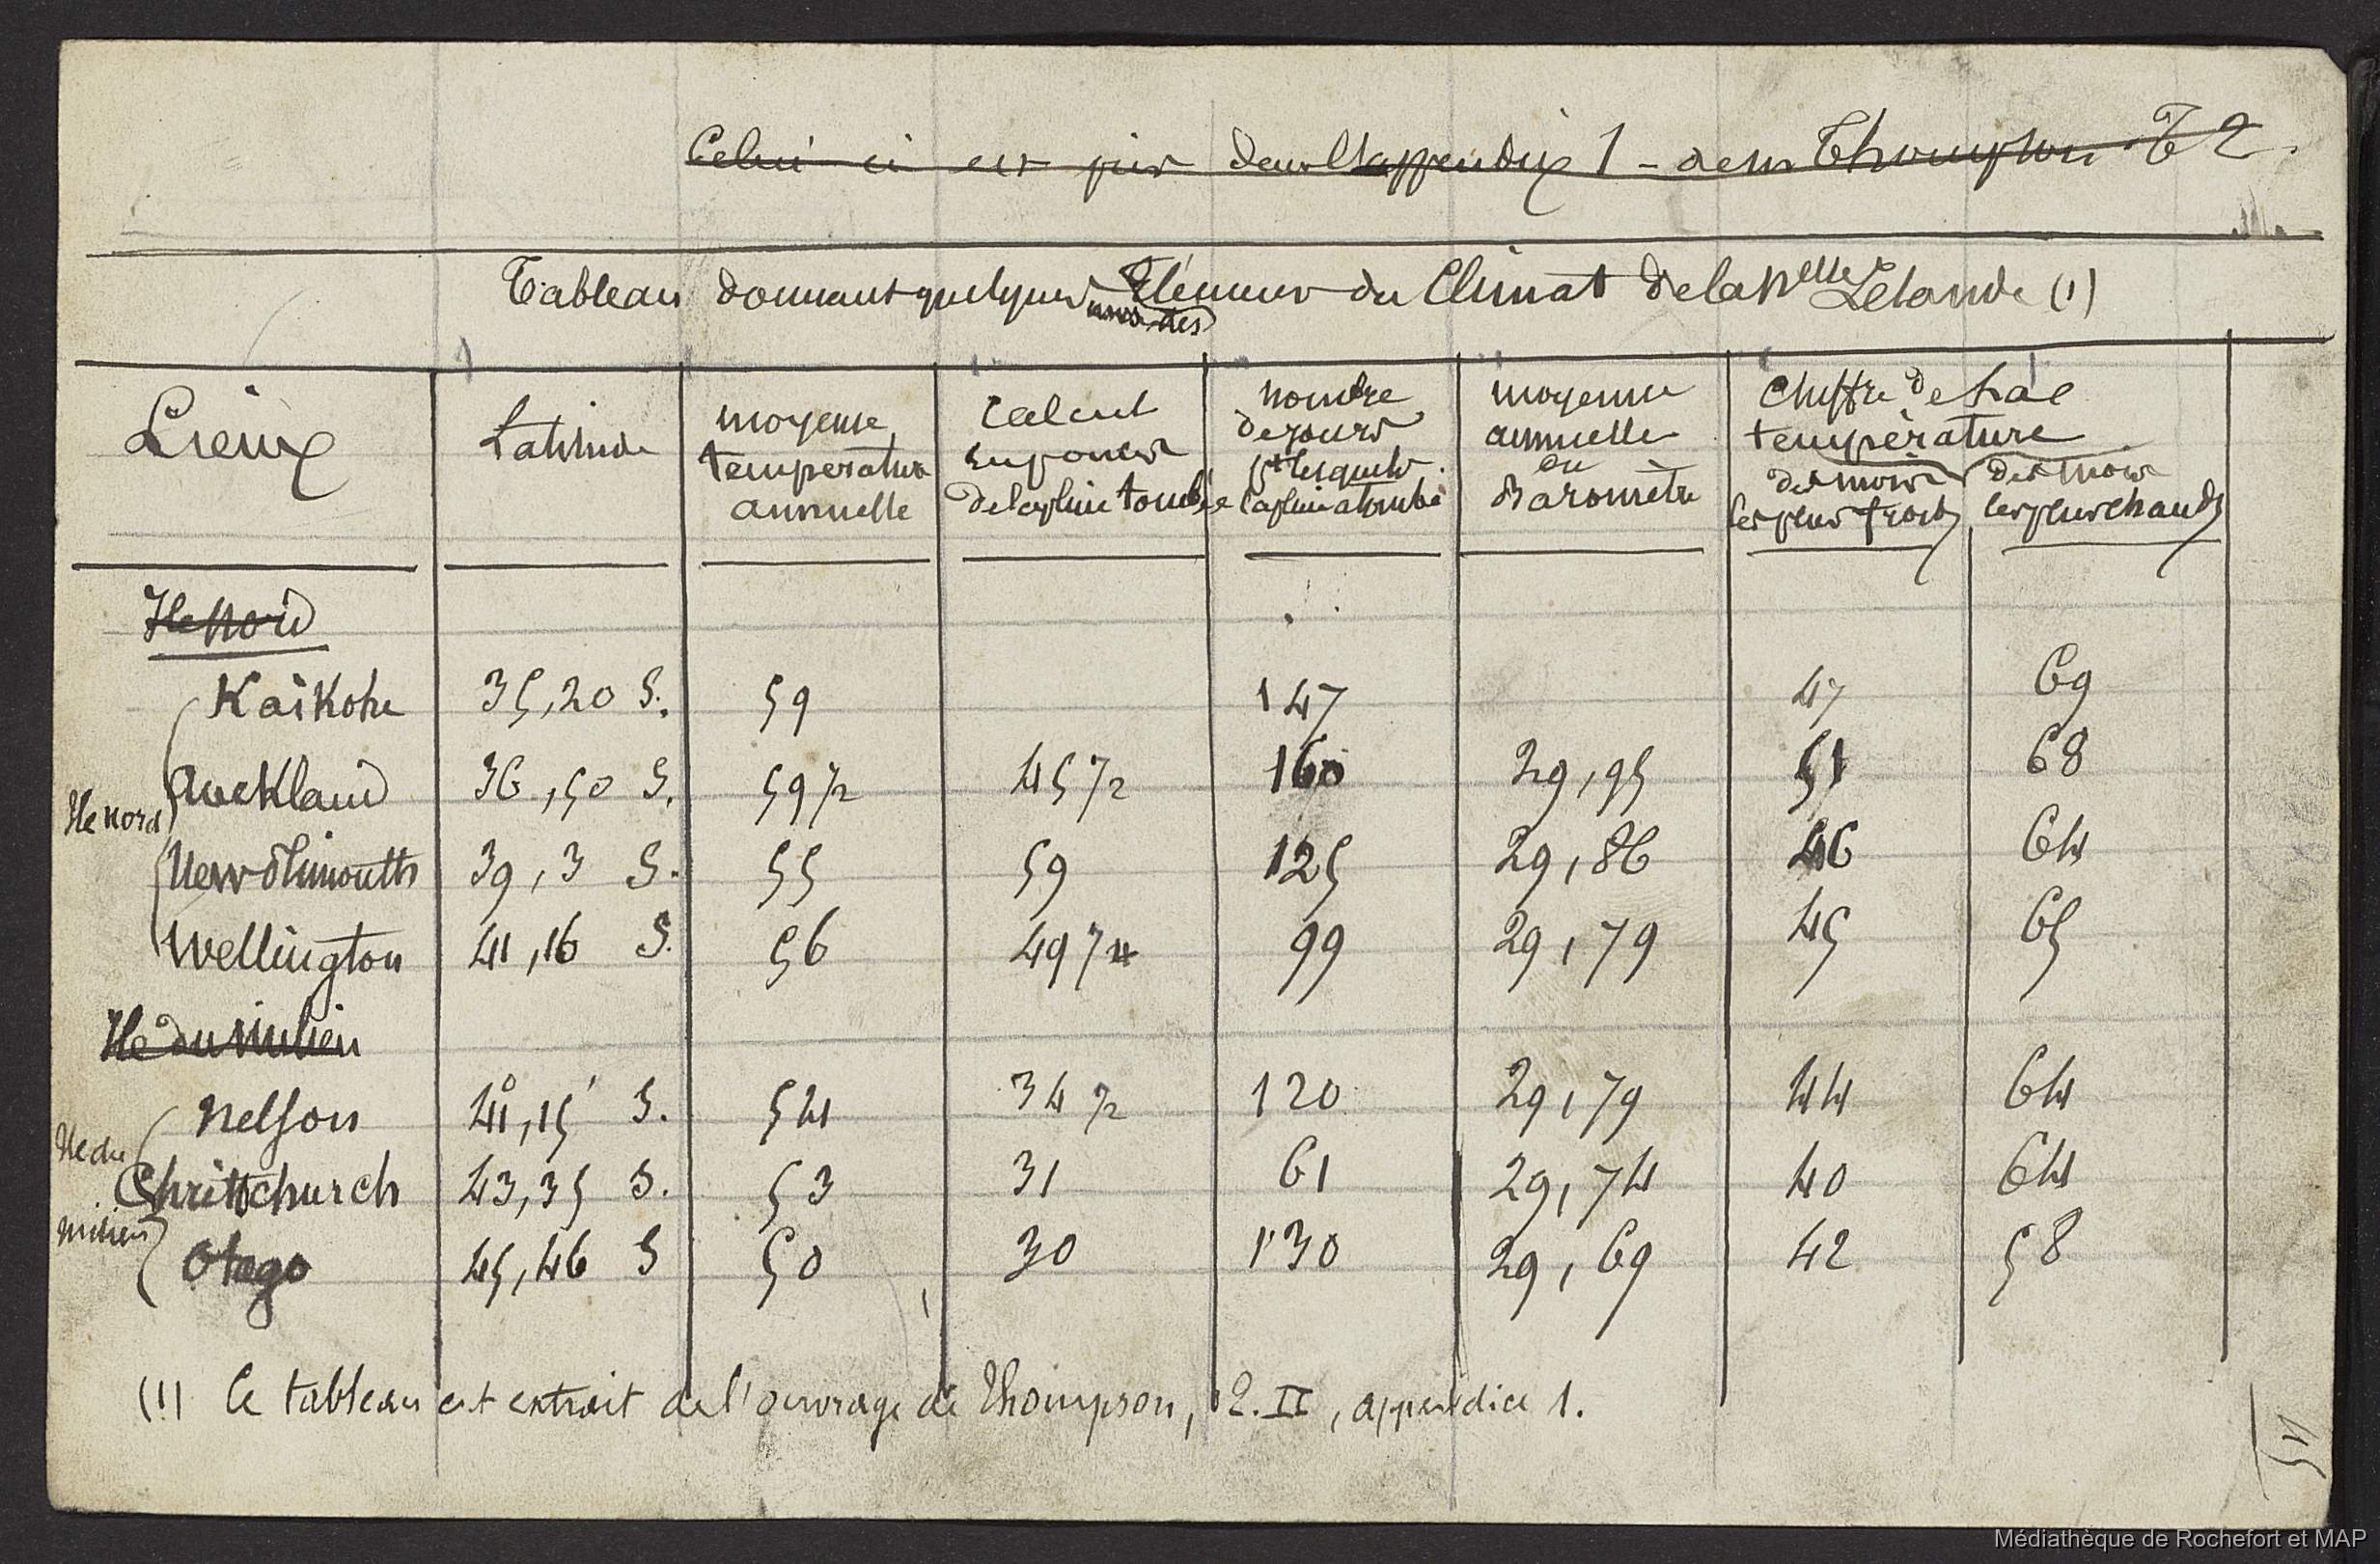 Celui-ci est pris dans l'appendix 1 - dans Thompson T 2.
Tableau donnant quelques Elements du Climat de la Nlle Zelande (1)
Lieux
Latitude
moyenne
temperature
annuelle
Calcul
en pouces
de la pluie tombée
nombre
de jours
pt lesquels
la pluie a tombé
moyenne
annuelle
du
Barometre
Chiffre de la
température
des mois
les plus froids
des mois
les plus chauds
Ile Nord
Ile nord
Kaikohe 35,20 S. 59 147 47 69
Auckland 36,50 S. 59 1/2 45 1/2 160 29,95 51 68
New Plimouth 39,3 S. 55 59 125 29,86 46 64
Wellington 41,16 S. 56 49 1/4 99 29,79 45 65
Ile du Milieu
Ile du
milieu
Nelson 41°,15' S. 54 34 1/2 120 29,79 44 64
Christchurch 43,35 S. 53 31 61 29,74 40 64
Otago 45,46 S 50 30 130 29,69 42 58
(1) Ce tableau est extrait de l'ouvrage de Thompson, T. II, appendice 1.
Médiathèque de Rochefort et MAP